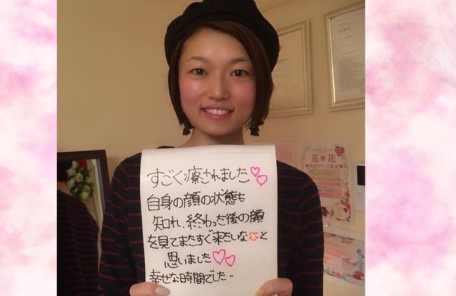 すごく癒されました♡♡
自身の顔の状態も
知れ、終わった後の顔
を見てまたすぐ来たいな♡と
思いました♡♡
幸せな時間でした-
花*花